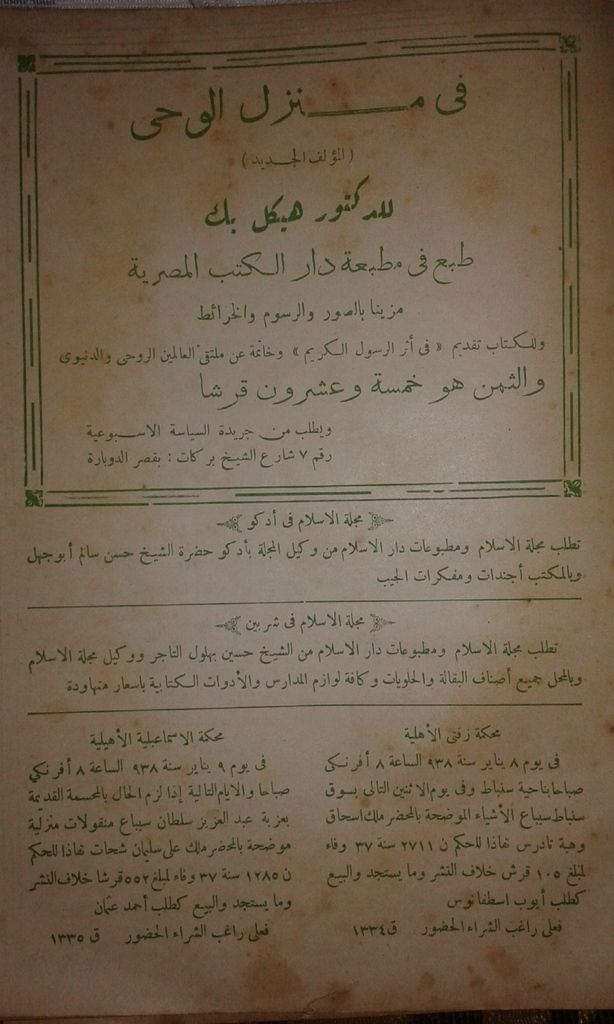 فى منزل الوحى
(المؤلف الجديد)
للدكتور هيكل بك
طبع فى مطبعة دار الكتب المصرية
مزينا بالصور والرسوم والخرائط
وللكتاب تقديم « فى أثر الرسول الكريم » وخاتمة عن ملتقى العالمين الروحى والدنيوى
والثمن هو خمسة وعشرون قرشا
ويطلب من جريدة السياسة الاسبوعية
رقم ٧ شارع الشيخ بركات : بقصر الدوبارة
مجلة الاسلام فى أدكو
تطلب مجلة الاسلام ومطبوعات دار الاسلام من وكيل المجلة بأدكو حضرة الشيخ حسن سالم أبو جهل
وبالمكتب أجندات ومفكرات الجيب
مجلة الاسلام فى شربين
تطلب مجلة الاسلام ومطبوعات دار الاسلام من الشيخ حسين بهلول التاجر ووكيل مجلة الاسلام
وبالمحل جميع أصناف البقالة والحلويات وكافة لوازم المدارس والأدوات الكتابية باسعار متهاودة
محكمة زفتى الأهلية
فى يوم ٨ يناير سنة ٩٣٨ الساعة ٨ أفرنكى
صباحا بناحية سنباط وفى يوم الاثنين التالى بسوق
سنباط سيباع الأشياء الموضحة بالمحضر ملك اسحاق
وهبة تادرس نفاذا للحكم ن ٢٧١١ سنة ٣٧ وفاء
لمبلغ ١٠٥ قرش خلاف النشر وما يستجد والبيع
كطلب أيوب اسطفانوس
فعلى راغب الشراء الحضور ق ١٣٣٤
محكمة الاسماعيلية الأهيلية
فى يوم ٩ يناير سنة ٩٣٨ الساعة ٨ أفرنكي
صباحا والايام التالية إذا لزم الحال بالمحسمة القديمة
بعزبة عبد العزيز سلطان سيباع منقولات منزلية
موضحة بالمحضر ملك على سليمان شحات نفاذا للحكم
ن ١٢٨٥ سنة ٣٧ وفاء لمبلغ ٥٥٢ قرشا خلاف النشر
وما يستجد والبيع كطلب أحمد عثمان
فعلى راغب الشراء الحضور ق ١٣٣٥